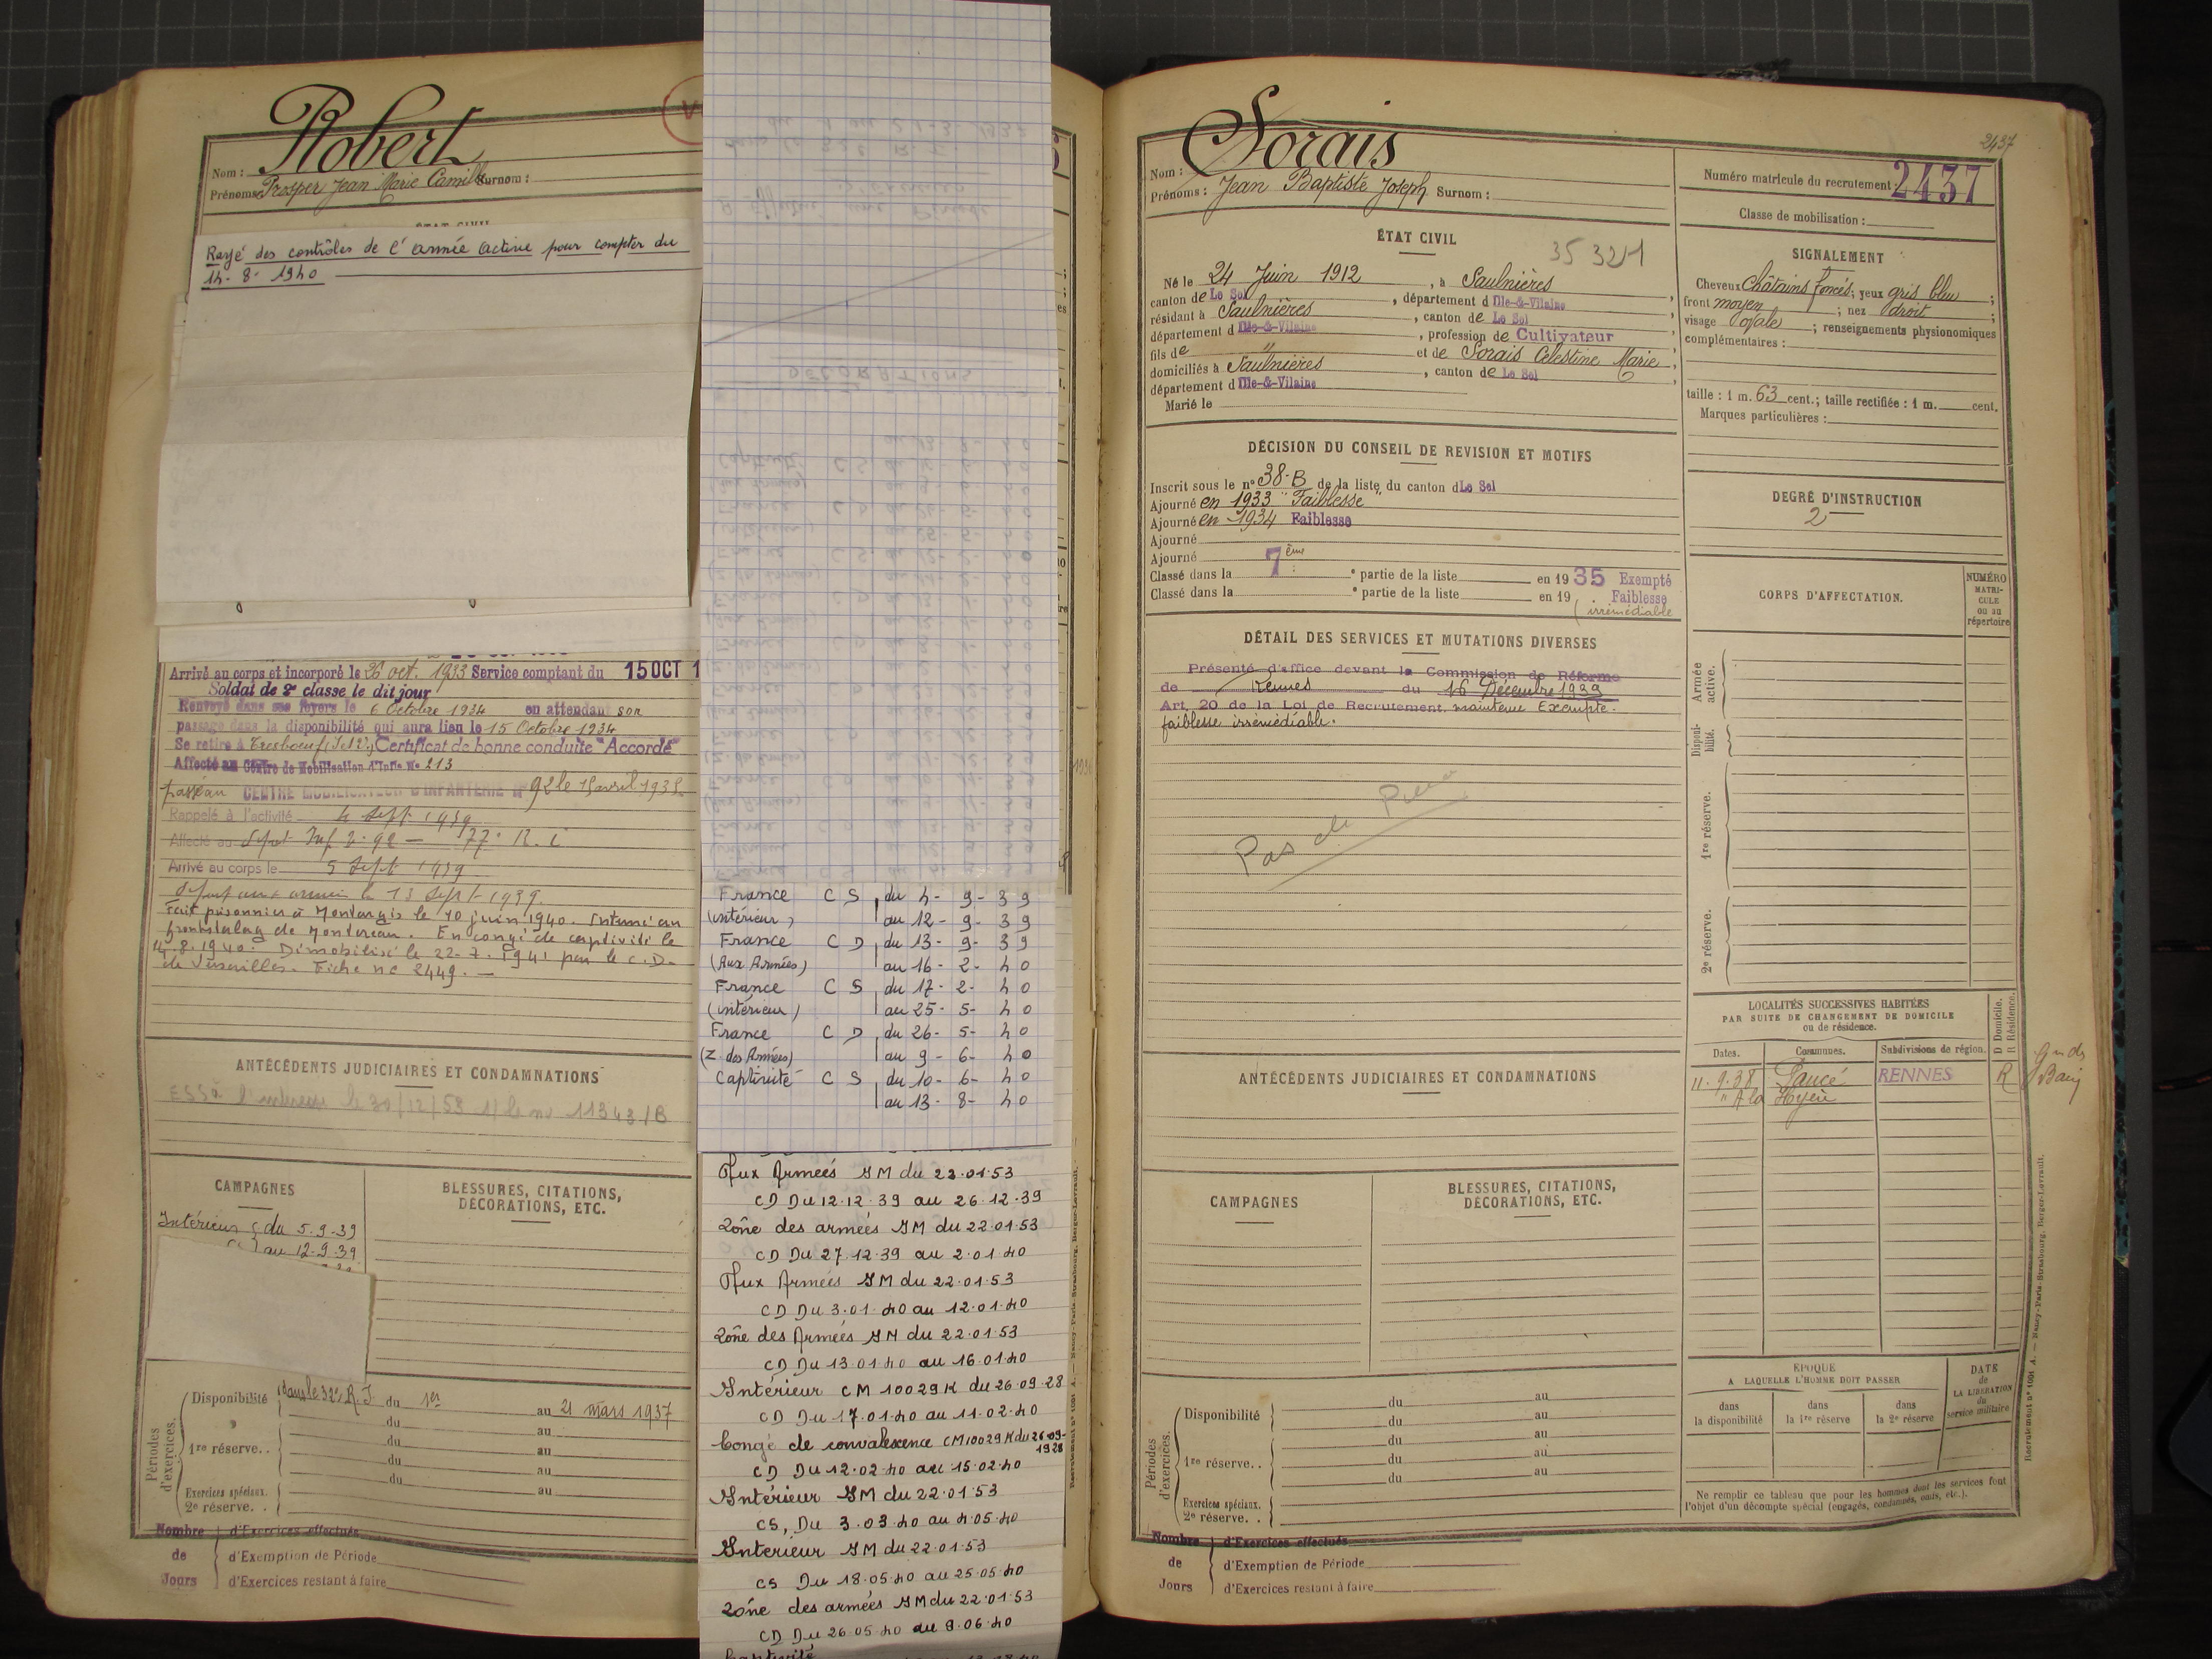 Robert
Nom :
Prénoms : Prosper Jean Marie Camille Surnom :
Rayé des contrôles de l'armée active pour compter du
14-8-1940
Arrivé au corps et incorporé le 26 oct. 1933 Service comptant du 15 OCT 1
Soldat de 2e classe le dit jour
Renvoyé dans ses foyers le 6 Octobre 1934 en attendant son
passage dans la disponibilité qui aura lieu le 15 Octobre 1934
Se retire à Tresboeuf (I et V) Certificat de bonne conduite "Accordé"
Affecté au Centre de Mobilisation d'Infie No 213
passé au CENTRE MOBILISATEUR D'INFANTERIE No 92 le 15 avril 193
Rappelé à l'activité 4 Sept 1939
Affecté au Dépôt Inf 292 — 77e R. I
Arrivé au corps le 5 Sept 1939
départ aux armées le 13 Sept 1939.
Fait prisonnier à Montargis le 10 juin 1940. Interné au
frontstalag de Montereau. En congé de captivité le
14.8.1940. Démobilisé le 22-7-1941 par le C.D.
de Versailles. Fiche no 2449. —
ANTÉCÉDENTS JUDICIAIRES ET CONDAMNATIONS
ESS à l'intéressé le 30/12/53 no 11343/B
CAMPAGNES
BLESSURES, CITATIONS,
DÉCORATIONS, ETC.
Intérieur du 5-9-39
au 12-9-39
Périodes d'exercices.
Disponibilité dans le 32e R.I. du 1er au 21 mars 1937
du au
1re réserve.. du au
du au
du au
Exercices spéciaux.
2e réserve. .
Nombre d'Exercices effectués
de d'Exemption de Période
Jours d'Exercices restant à faire
France C S du 4-9-39
(intérieur) au 12-9-39
France C D du 13-9-39
(Aux Armées) au 16-2-40
France C S du 17-2-40
(intérieur) au 25-5-40
France C D du 26-5-40
(Z. des Armées) au 9-6-40
Captivité C S du 10-6-40
au 13-8-40
Aux Armées IM du 22.01.53
CD Du 12.12.39 au 26.12.39
Zône des armées IM du 22.01.53
CD Du 27.12.39 au 2.01.40
Aux Armées IM du 22.01.53
CD Du 3.01.40 au 12.01.40
Zône des Armées IM du 22.01.53
CD Du 13.01.40 au 16.01.40
Intérieur CM 10029K du 26.09.28
CD Du 17.01.40 au 11.02.40
Congé de convalescence CM 10029K du 26.09.1928
CD Du 12.02.40 au 15.02.40
Intérieur IM du 22.01.53
CS, Du 3.03.40 au 4.05.40
Intérieur IM du 22.01.53
CS Du 18.05.40 au 25.05.40
Zône des armées IM du 22.01.53
CD Du 26.05.40 au 9.06.40
Captivité
Sorais
2437
Nom :
Prénoms : Jean Baptiste Joseph Surnom :
Numéro matricule du recrutement : 2437
Classe de mobilisation :
ÉTAT CIVIL
35 321
Né le 24 Juin 1912, à Saulnières
canton de Le Sel, département d Ille-&-Vilaine
résidant à Saulnières, canton de Le Sel
département d Ille-&-Vilaine, profession de Cultivateur
fils de " et de Sorais Célestine Marie
domiciliés à Saulnières, canton de Le Sel
département d Ille-&-Vilaine
Marié le
SIGNALEMENT
Cheveux Châtains foncés; yeux gris bleu;
front moyen; nez droit;
visage Ovale; renseignements physionomiques
complémentaires :
taille : 1 m. 63 cent.; taille rectifiée : 1 m. cent.
Marques particulières :
DÉCISION DU CONSEIL DE REVISION ET MOTIFS
Inscrit sous le no 38-B de la liste du canton d Le Sel
Ajourné en 1933 "Faiblesse"
Ajourné en 1934 Faiblesse
Ajourné
Ajourné
Classé dans la 7ème partie de la liste en 1935 Exempté
Classé dans la e partie de la liste en 19 Faiblesse
irrémédiable
DEGRÉ D'INSTRUCTION
2
DÉTAIL DES SERVICES ET MUTATIONS DIVERSES
Présenté d'office devant la Commission de Réforme
de Rennes du 16 Décembre 1939
Art. 20 de la Loi de Recrutement. maintenu Exempté.
faiblesse irrémédiable.
Pas de
CORPS D'AFFECTATION.
NUMÉRO MATRICULE ou au répertoire
Armée active.
Disponibilité.
1re réserve.
2e réserve.
LOCALITÉS SUCCESSIVES HABITÉES
PAR SUITE DE CHANGEMENT DE DOMICILE
ou de résidence.
D Domicile. R Résidence.
Dates. Communes. Subdivisions de région.
11.9.38 Jancé RENNES R
ANTÉCÉDENTS JUDICIAIRES ET CONDAMNATIONS
CAMPAGNES
BLESSURES, CITATIONS,
DÉCORATIONS, ETC.
Périodes d'exercices.
Disponibilité du au
du au
1re réserve.. du au
du au
du au
Exercices spéciaux.
2e réserve. .
Nombre d'Exercices effectués
de d'Exemption de Période
Jours d'Exercices restant à faire
ÉPOQUE
A LAQUELLE L'HOMME DOIT PASSER
dans la disponibilité
dans la 1re réserve
dans la 2e réserve
DATE de LA LIBÉRATION du service militaire
Ne remplir ce tableau que pour les hommes dont les services font
l'objet d'un décompte spécial (engagés, condamnés, omis, etc.).
Recrutement no 1001 A. — Nancy-Paris-Strasbourg, Berger-Levrault.